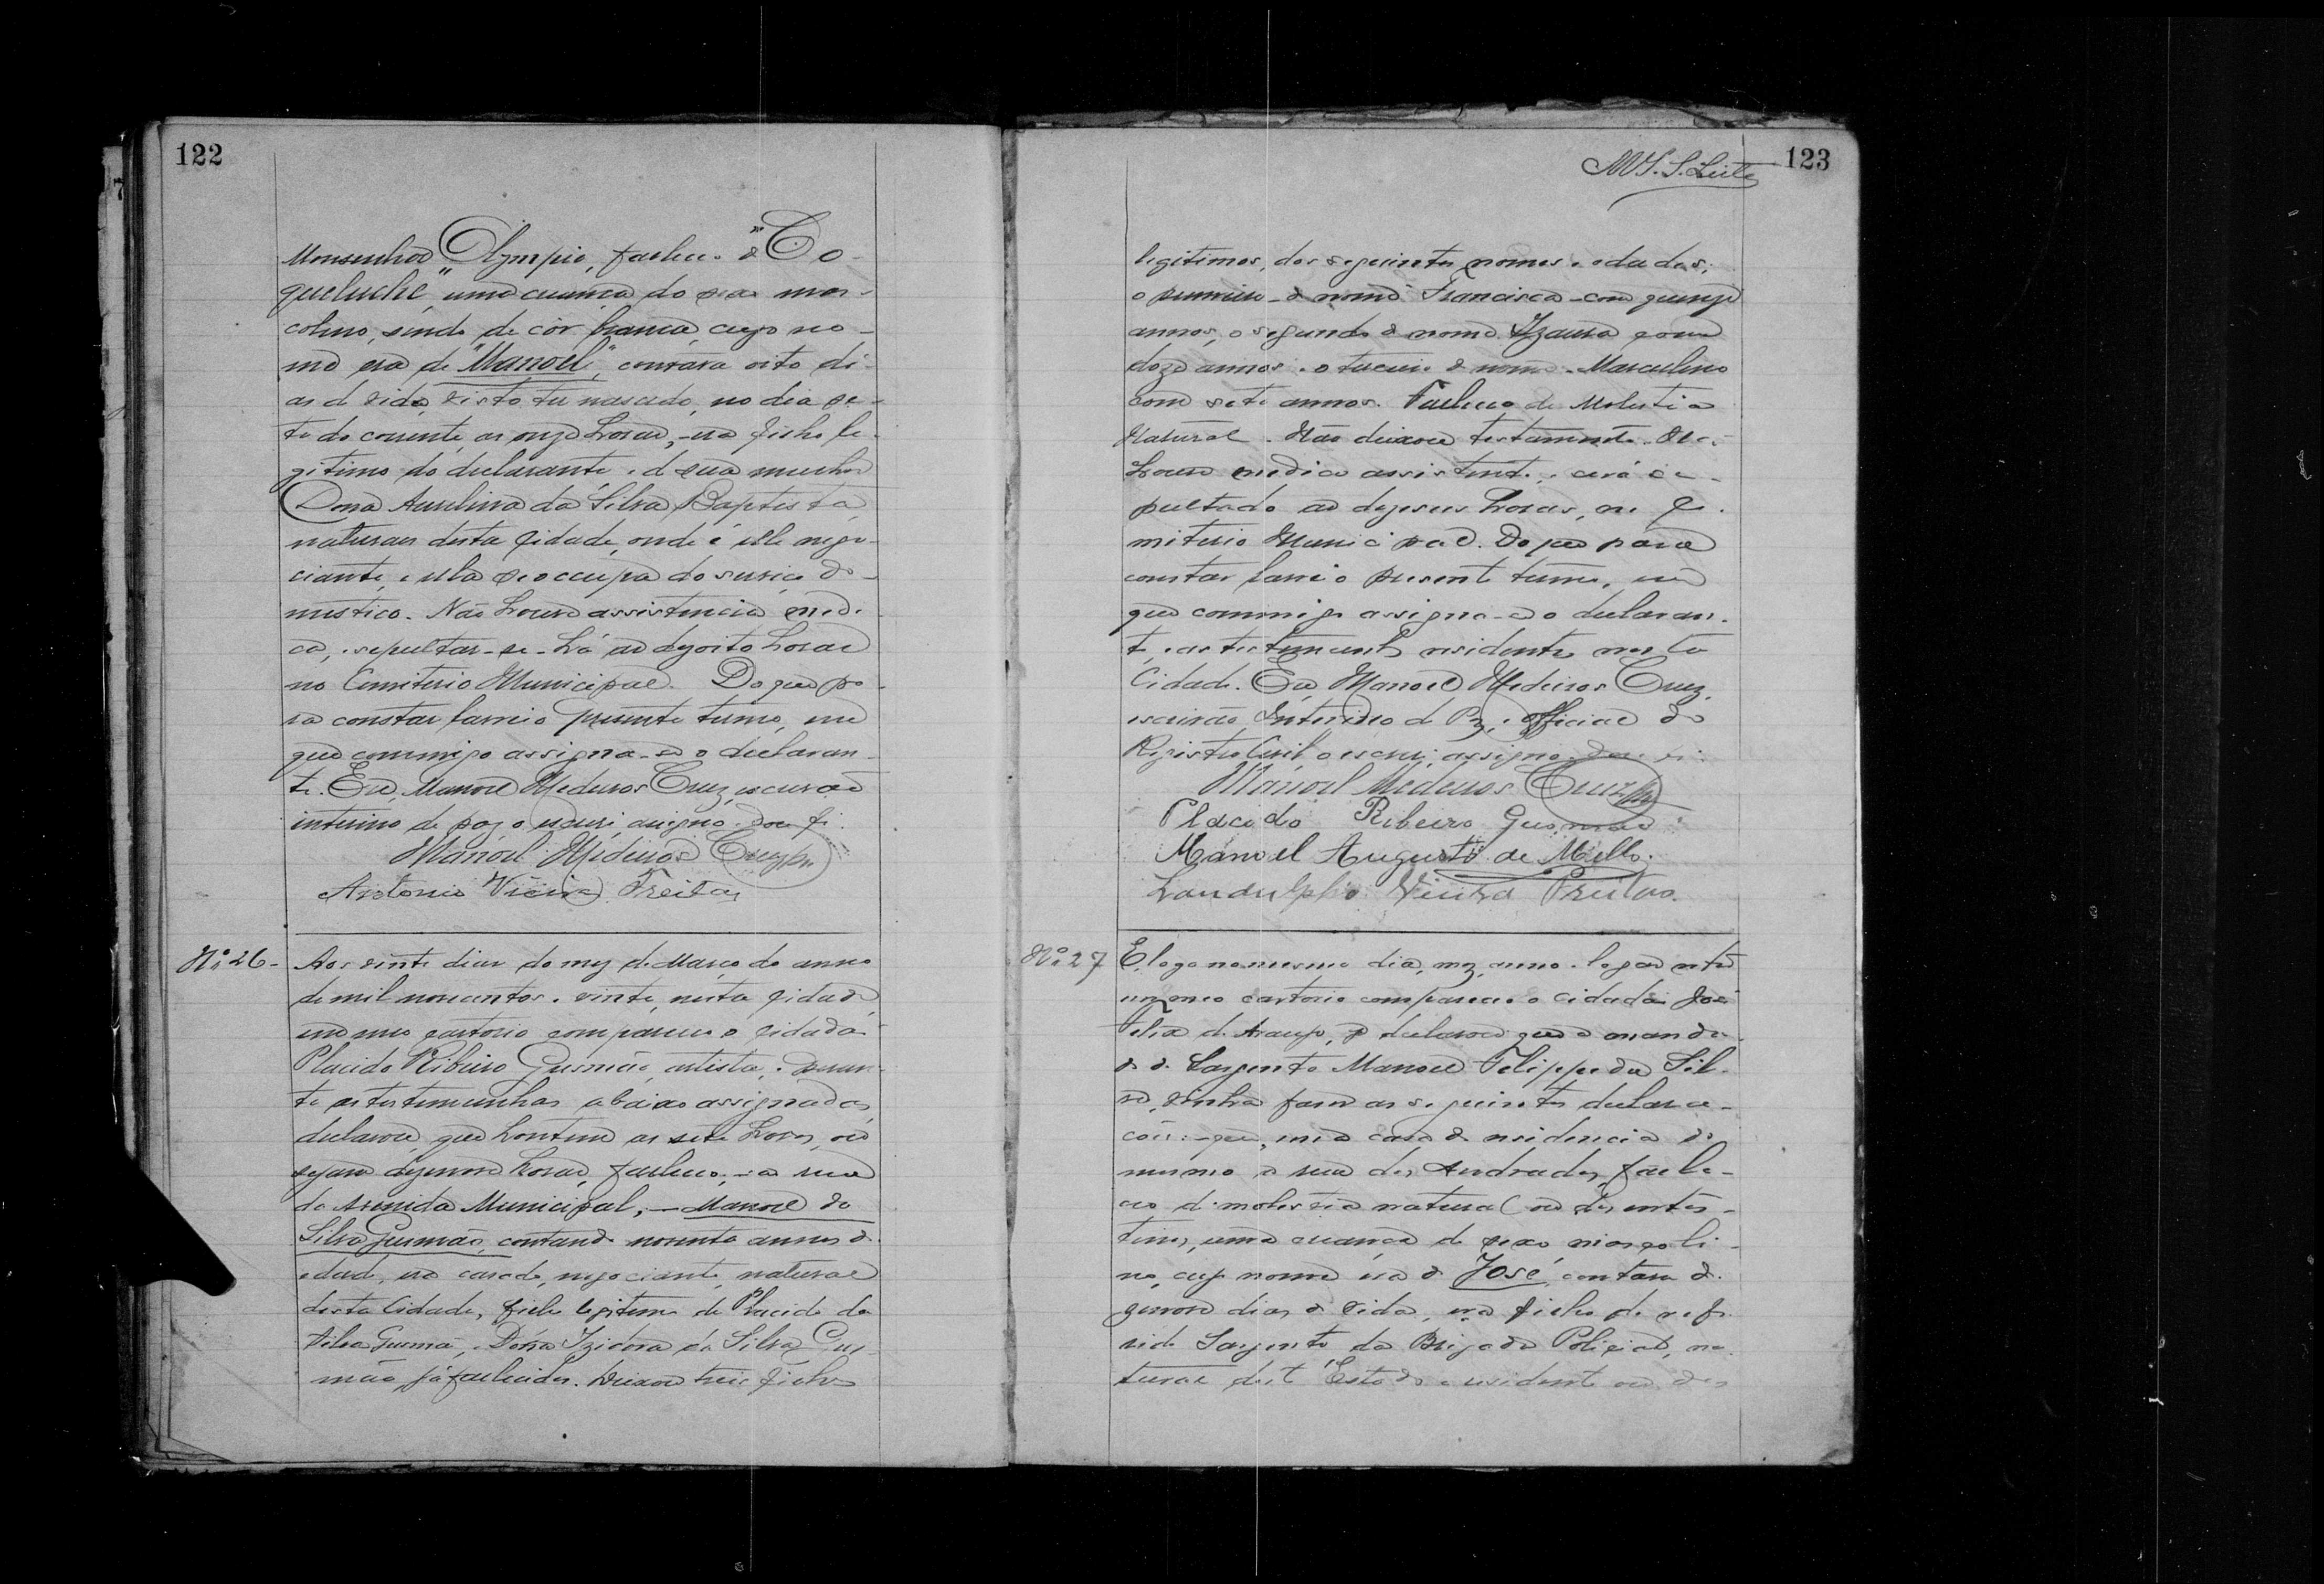 122
Monsenhor Olympio, falleceu de "Co-
queluche" uma criança do sexo mas-
colino, sendo de côr branca, cujo no-
me era de "Manoel", contava oito di-
as de vida, visto ter nascido, no dia se-
te do corrente, as onze horas, era filho le-
gitimo do declarante, e de sua mulher
Dona Aurelina da Silva Baptista,
naturaes desta Cidade, onde é elle nego-
ciante, e ella se occupa do serviço do-
mestico. Não houve assistencia medi-
ca, e sepultar-se-há as dezoito horas
no Cemiterio Municipal. Do que pa-
ra constar lavrei o presente termo, em
que commigo assigna-se o declaran-
te. Eu, Manoel Medeiros Cruz, escrivão
interino de paz o escrevi, assigno e dou fé.
Manoel Medeiros Cruz
Antonio Vieira Freitas
Nº 26-
Aos vinte dias do mez de Março do anno
de mil novecentos e vinte, nesta Cidade,
em meo cartorio compareceu o cidadão
Placido Ribeiro Gusmão, artista, e peran-
te as testemunhas abaixo assignadas,
declarou que hontem as sete horas, ou
sejam dezenove horas, falleceu, a rua
da Avenida Municipal, - Manoel da
Silva Gusmão, contando noventa annos de
edade, era casado, negociante, natural
desta Cidade, filho legitimo de Placido da
Silva Gusmão, e Dona Izidora da Silva Gus-
mão já fallecidos. Deixou trez filhos
M S. S. Leite
123
legitimos, dos seguintes nomes e edades;
o primeiro de nome Francisca com quinze
annos, o segundo de nome Izaura com
doze annos e o terceiro de nome Marcelino
com sete annos. Falleceu de Molestia
Natural. Não deixou testamento. Não
houve medico assistente, e será se-
pultado as dezeseis horas, no Ce-
miterio Municipal. Do que para
constar lavrei o presente termo, em
que commigo assigna-se o declaran-
te, e as testemunhas residentes nesta
Cidade. Eu, Manoel Medeiros Cruz,
escrivão Interino de Paz, e Official do
Registro Civil o escrevi, assigno e dou fé.
Manoel Medeiros Cruz
Placido Ribeiro Gusmão
Manoel Augusto de Mello.
Landulpho Vieira Freitas.
Nº 27
E, logo no mesmo dia, mez, anno e logar retro
em meo cartorio compareceu o cidadão José
Felix de Araujo, e declarou que a manda-
do do Sargento Manoel Felippe da Sil-
va, vinha fazer as seguintes declara-
ções: - que, em a casa de residencia do
mesmo a rua dos Andradas, falle-
ceu de molestia natural ou de intes-
tinos, uma criança do sexo mascoli-
no, cujo nome era de José, contava de-
zenove dias de vida, era filho do refe-
rido Sargento da Brigada Policial, na-
tural deste Estado e residente em dos